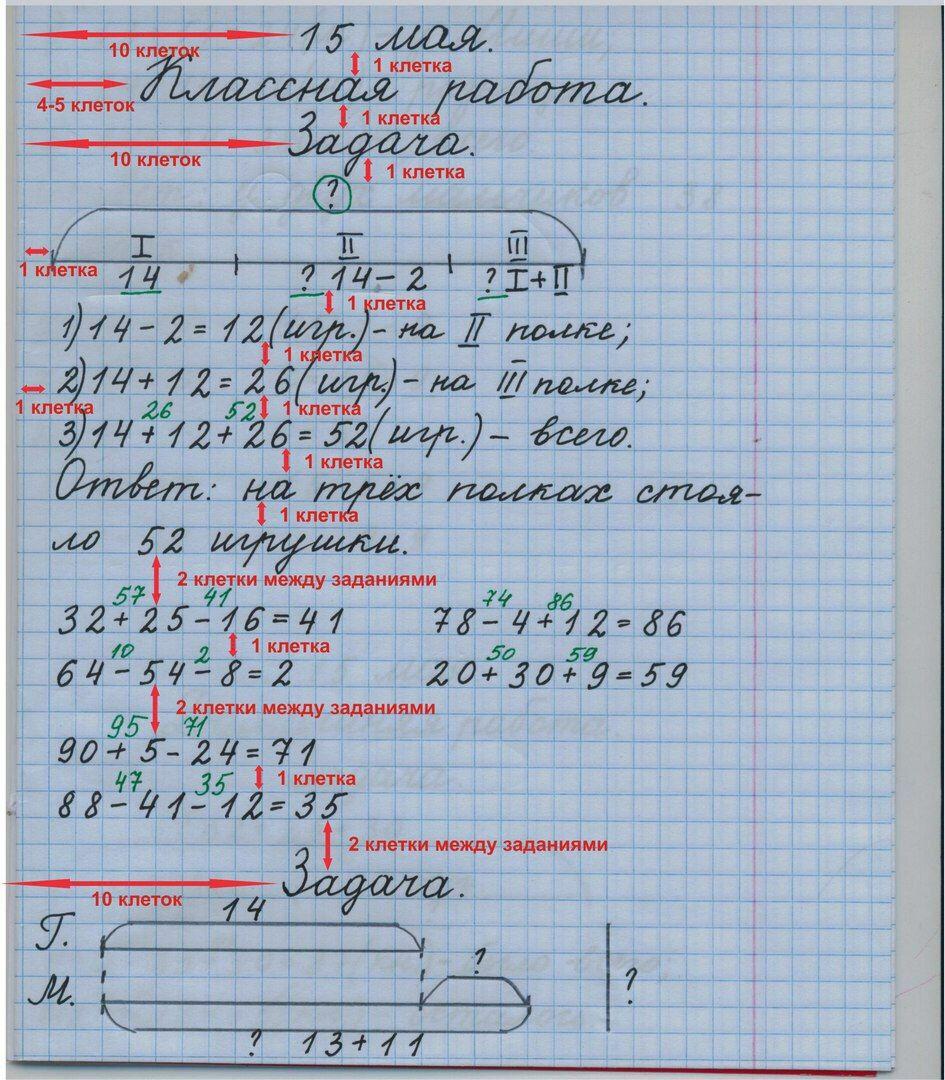 15 мая.
10 клеток
1 клетка
Классная работа.
4-5 клеток
1 клетка
Задача.
10 клеток
1 клетка
?
I II III
1 клетка
14 ? 14-2 ? I+II
1 клетка
1) 14-2=12(игр.)- на II полке;
1 клетка
2) 14+12=26(игр.)- на III полке;
1 клетка
1 клетка
26 52
3) 14+12+26=52(игр.)- всего.
1 клетка
Ответ: на трёх полках стоя-
1 клетка
ло 52 игрушки.
2 клетки между заданиями
57 41 74 86
32+25-16=41 78-4+12=86
1 клетка
10 2 50 59
64-54-8=2 20+30+9=59
2 клетки между заданиями
95 71
90+5-24=71
1 клетка
47 35
88-41-12=35
2 клетки между заданиями
Задача.
10 клеток
14
Г.
?
М. ?
? 13+11